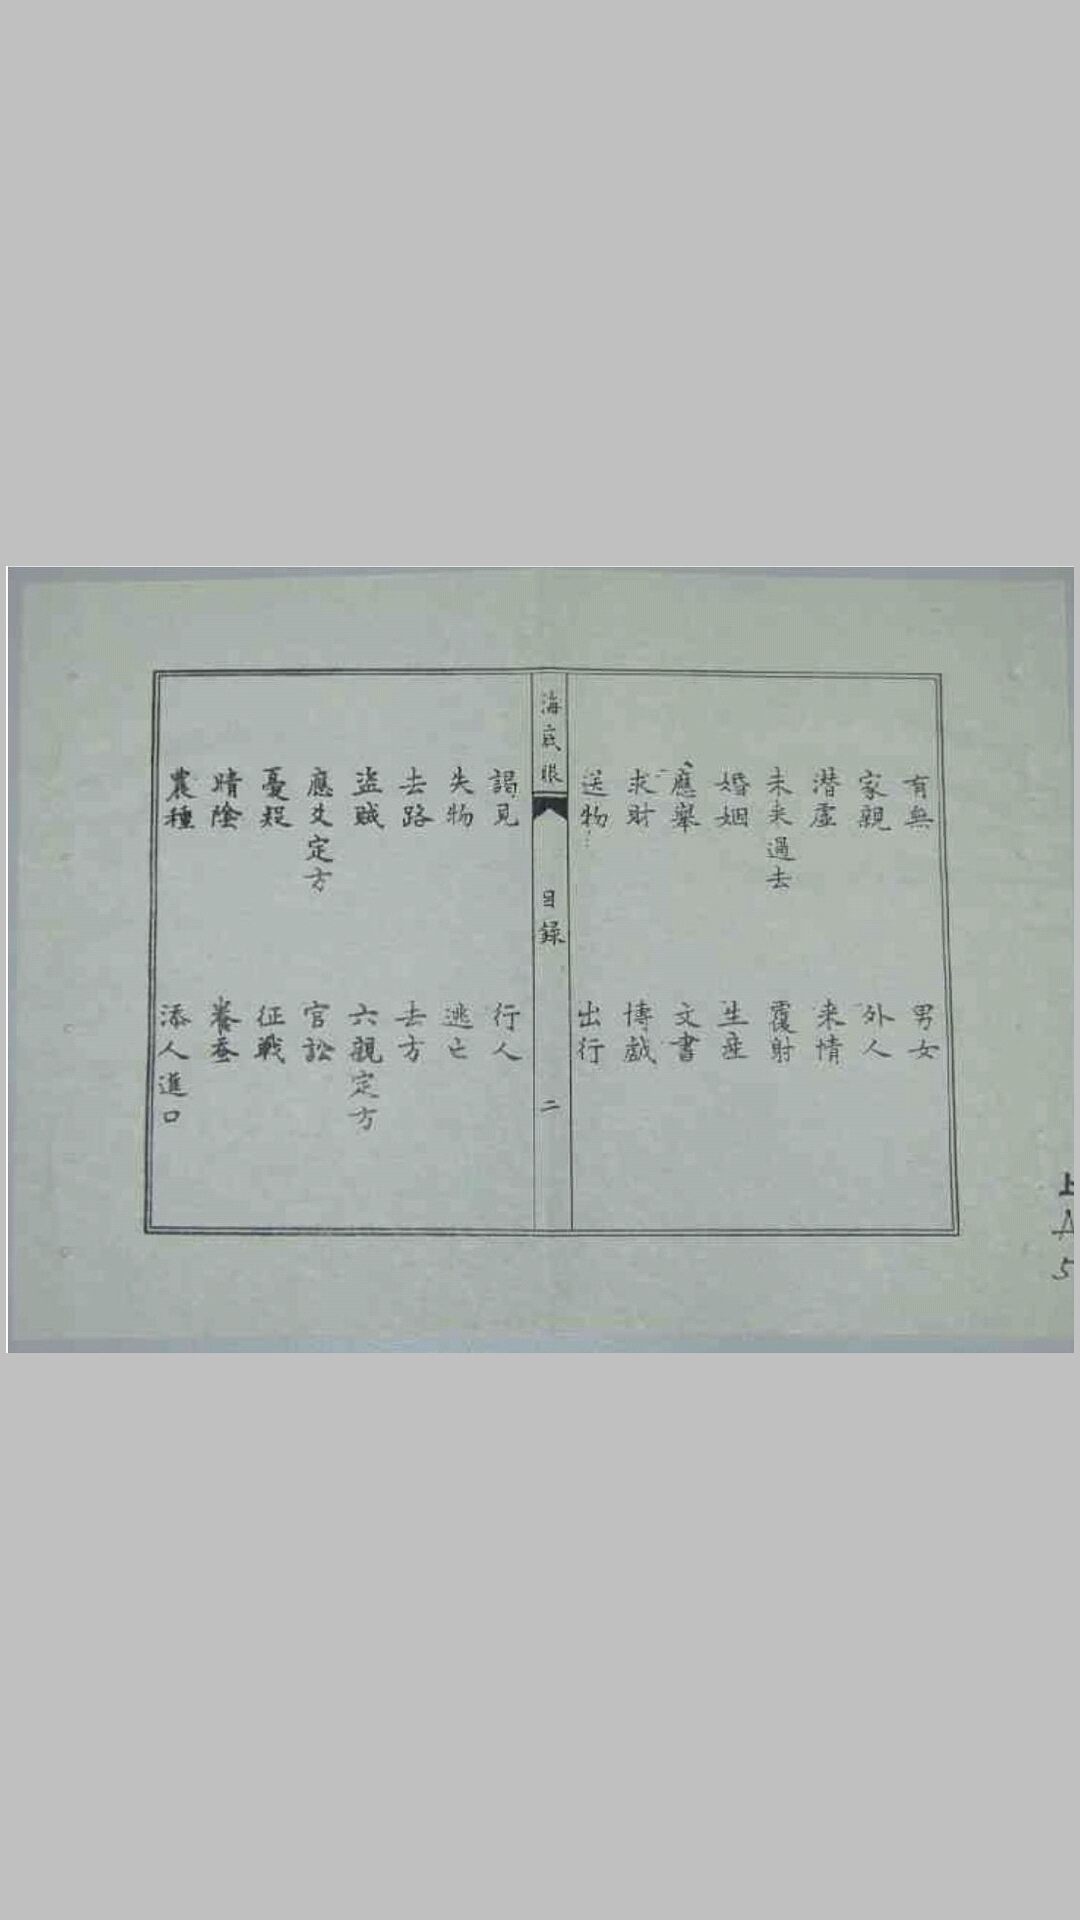 有無
男女
家親
外人
潜虛
来情
未来過去
覆射
婚姻
生産
應舉
文書
求財
博戯
送物
出行
海底眼
目録
二
謁見
行人
失物
逃亡
去路
去方
盗賊
六親定方
應爻定方
官訟
憂疑
征戰
晴陰
養蚕
農種
添人進口
上
5